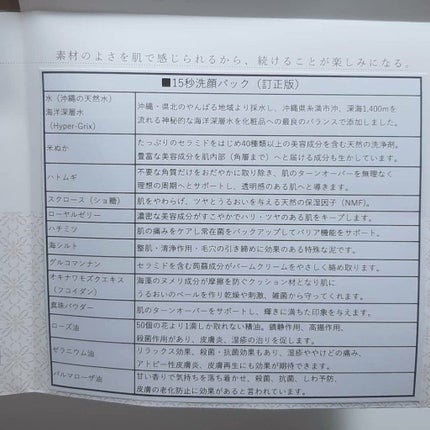 素材のよさを肌で感じられるから、続けることが楽しみになる。
■15秒洗顔パック（訂正版）
水（沖縄の天然水）
海洋深層水
（Hyper-Grix）
沖縄・県北のやんばる地域より採水し、沖縄県糸満市沖、深海1,400mを
流れる神秘的な海洋深層水を化粧品への最良のバランスで添加しました。
米ぬか
たっぷりのセラミドをはじめ40種類以上の美容成分を含む天然の洗浄剤。
豊富な美容成分を肌内部（角層まで）へと届ける成分も生かしています。
ハトムギ
不要な角質だけをおだやかに取り除き、肌のターンオーバーを無理なく
理想の周期へとサポートし、透明感のある肌へと導きます。
スクロース（ショ糖）
肌をやわらげ、ツヤとうるおいを与える天然の保湿因子（NMF）。
ローヤルゼリー
濃密な美容成分がすこやかでハリ・ツヤのある肌をキープします。
ハチミツ
肌の痛みをケアし常在菌をバックアップしてバリア機能をサポート。
海シルト
整肌・清浄作用・毛穴の引き締めに効果のある特殊な泥です。
グルコマンナン
セラミドを含む蒟蒻成分がバームクリームをやさしく絡め取ります。
オキナワモズクエキス
（フコイダン）
海藻のヌメリ成分が摩擦を防ぐクッション材となり肌に
うるおいのベールを作り乾燥や刺激、雑菌から守ってくれます。
真珠パウダー
肌のターンオーバーをサポートし、輝きに満ちた印象を与えます。
ローズ油
50個の花より1滴しか取れない精油。鎮静作用、高揚作用、
殺菌作用があり、皮膚炎、湿疹の治りを促します。
ゼラニウム油
リラックス効果、殺菌・抗菌効果もあり、湿疹ややけどの痛み、
アトピー性皮膚炎、皮膚再生にも効果が期待できます。
パルマローザ油
甘い香りで気持ちを落ち着かせ、殺菌、抗菌、しわ予防、
皮膚の老化防止に効果があると言われています。